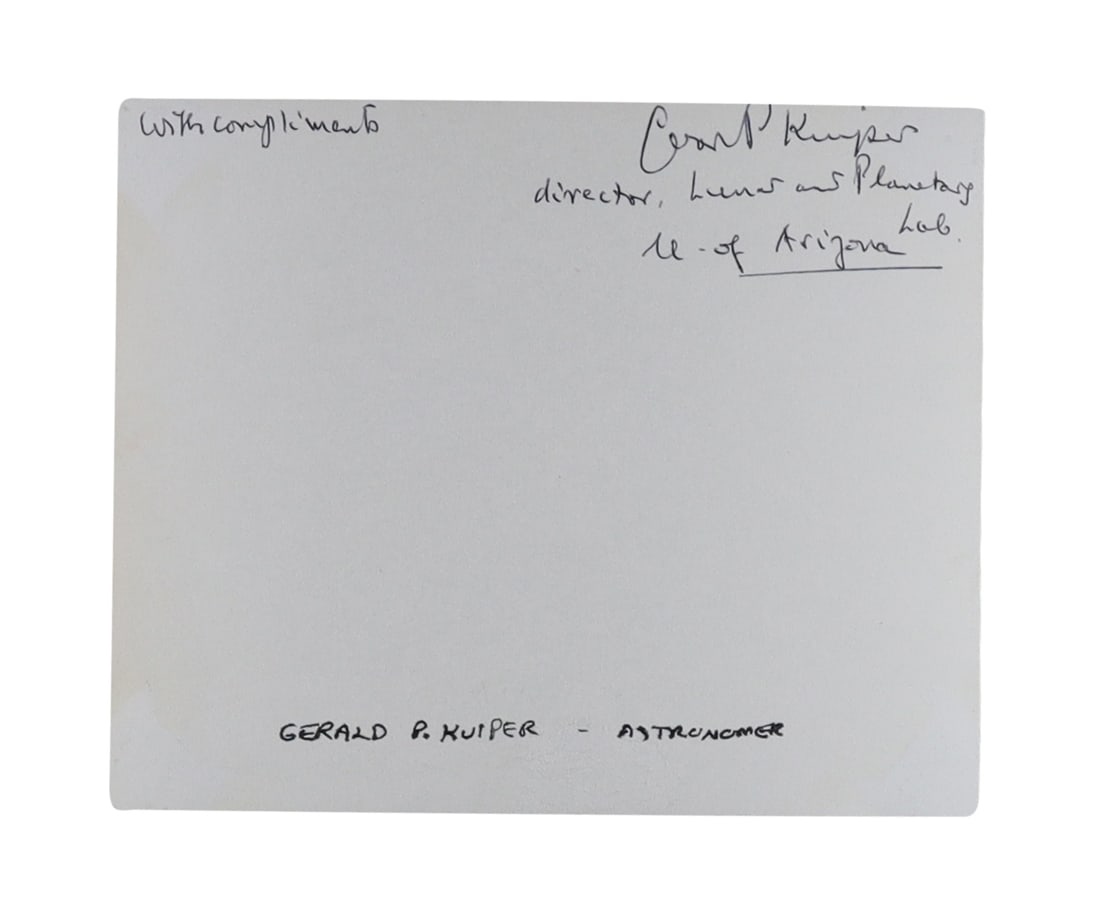 with compliments
Gerard P Kuiper
director, Lunar and Planetary
Lab.
U. of Arizona
GERALD P. KUIPER - ASTRONOMER